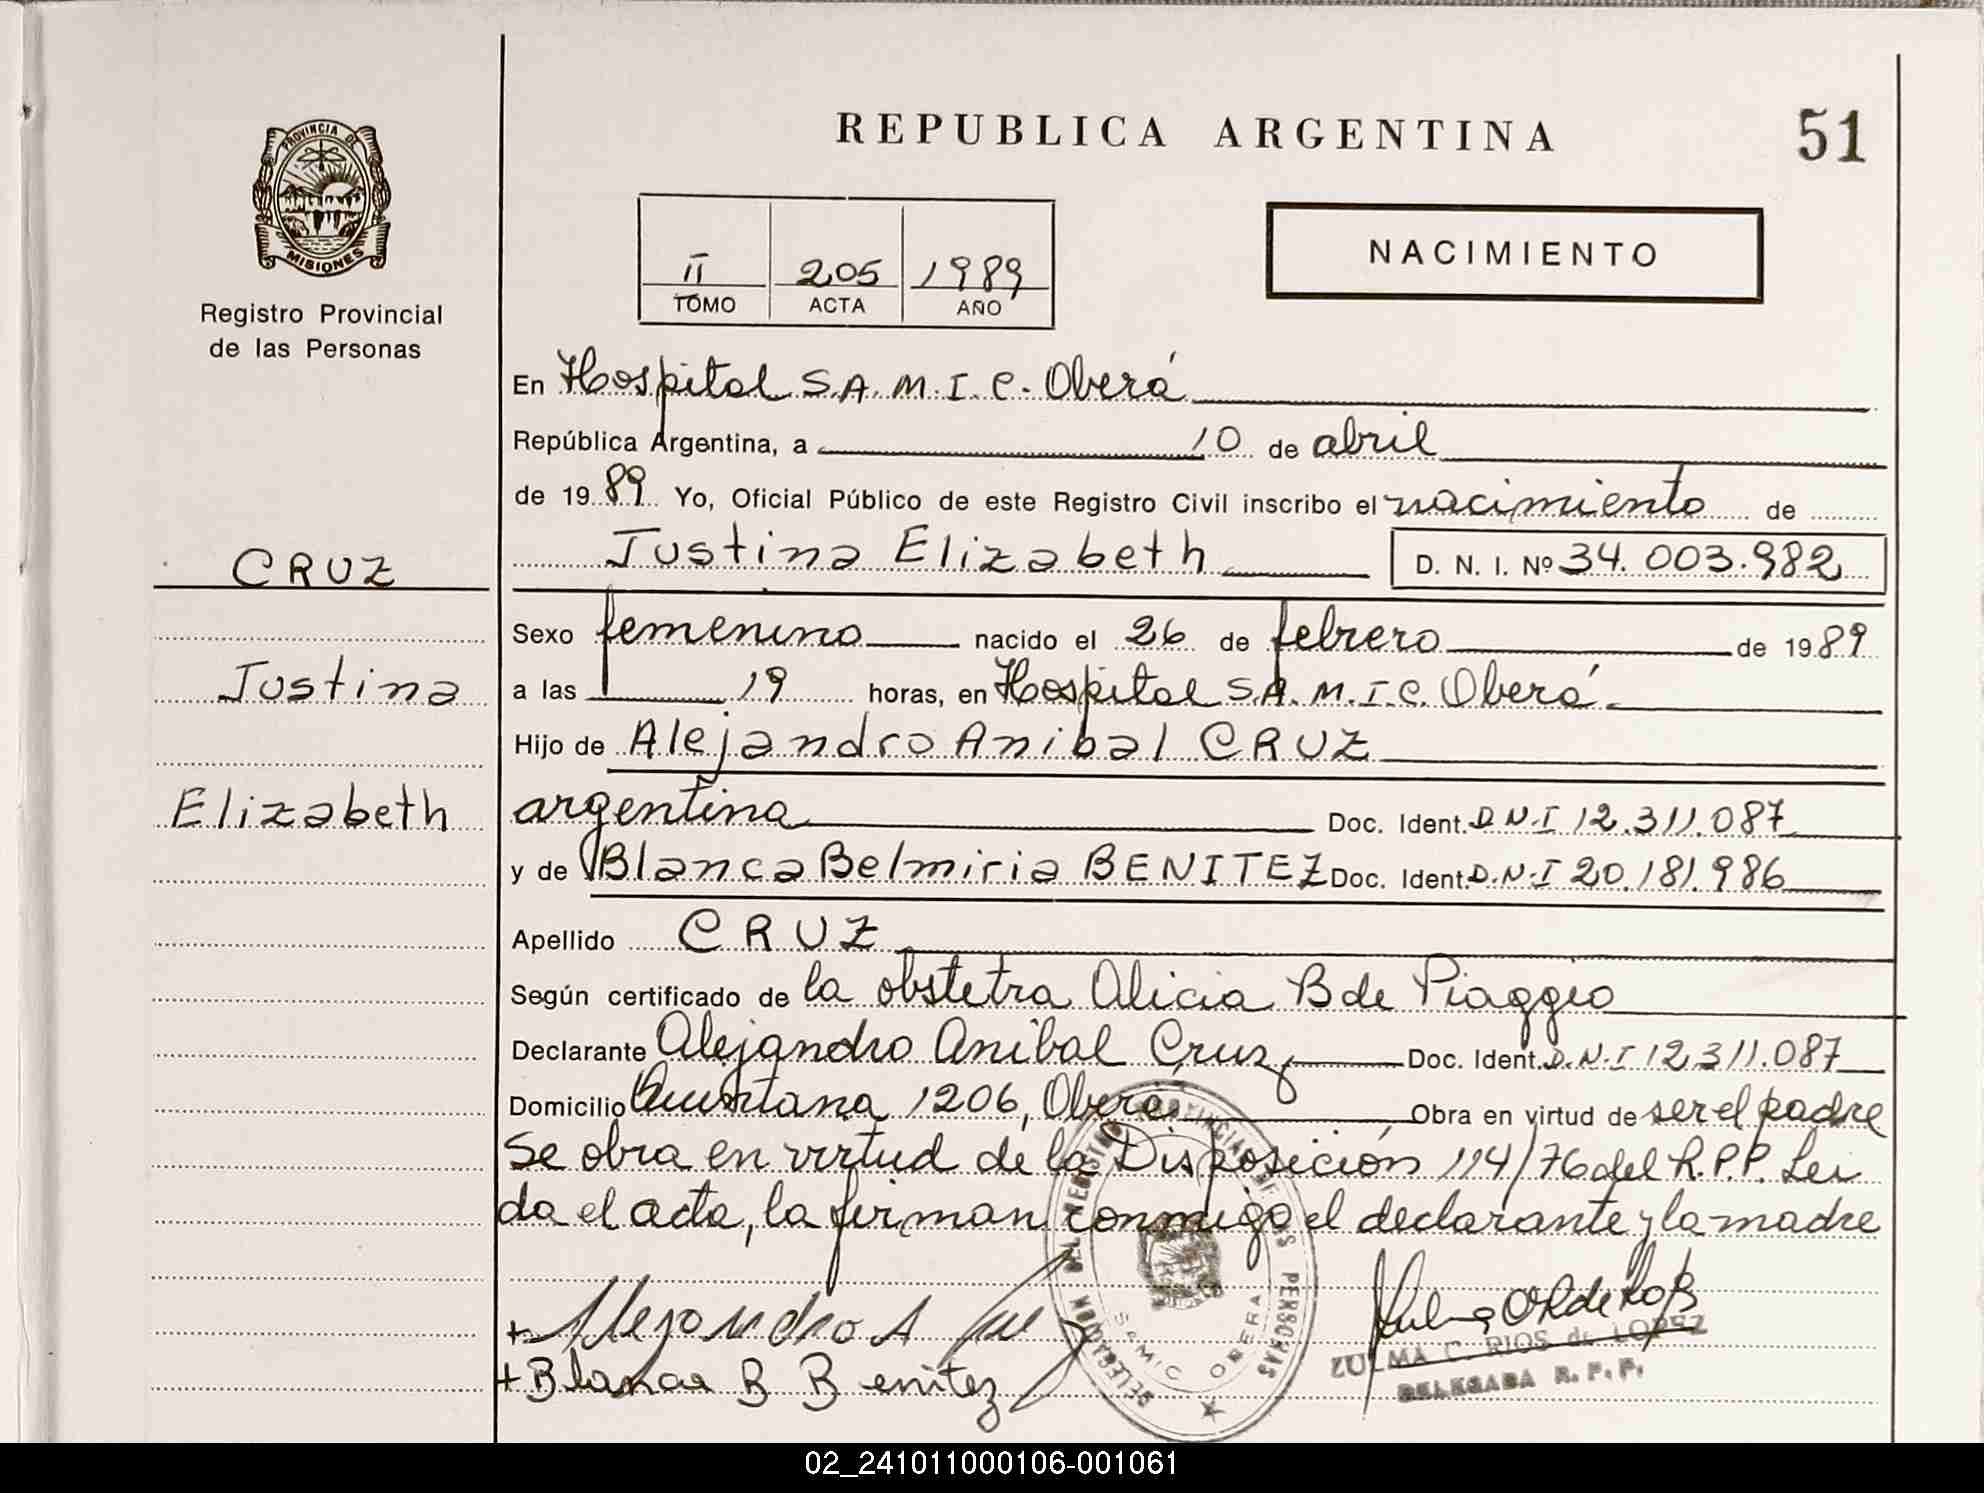 REPUBLICA ARGENTINA
51
PROVINCIA DE
MISIONES
Registro Provincial
de las Personas
II 205 1989
TOMO ACTA AÑO
NACIMIENTO
En Hospital S.A.M.I.C. Oberá
República Argentina, a 10 de abril
de 1989 Yo, Oficial Público de este Registro Civil inscribo el nacimiento de
CRUZ
Justina Elizabeth D. N. I. Nº 34.003.982
Sexo femenino nacido el 26 de febrero de 1989
Justina
a las 19 horas, en Hospital S.A.M.I.C. Oberá
Hijo de Alejandro Anibal CRUZ
Elizabeth
argentina Doc. Ident. D.N.I 12.311.087
y de Blanca Belmiria BENITEZ Doc. Ident. D.N.I 20.181.986
Apellido CRUZ
Según certificado de la obstetra Alicia B de Piaggio
Declarante Alejandro Anibal Cruz Doc. Ident. D.N.I 12.311.087
Domicilio Quintana 1206, Oberá Obra en virtud de ser el padre
Se obra en virtud de la Disposición 114/76 del R.P.P. Lei
da el acta, la firman conmigo el declarante y la madre
DELEGACION DEL REGISTRO PROVINCIAL DE LAS PERSONAS
SAMIC OBERA
+ Alejandro A Cruz
+ Blanca B Benitez
ZULMA C. RIOS de LOPEZ
DELEGADA R.P.P.
02_241011000106-001061